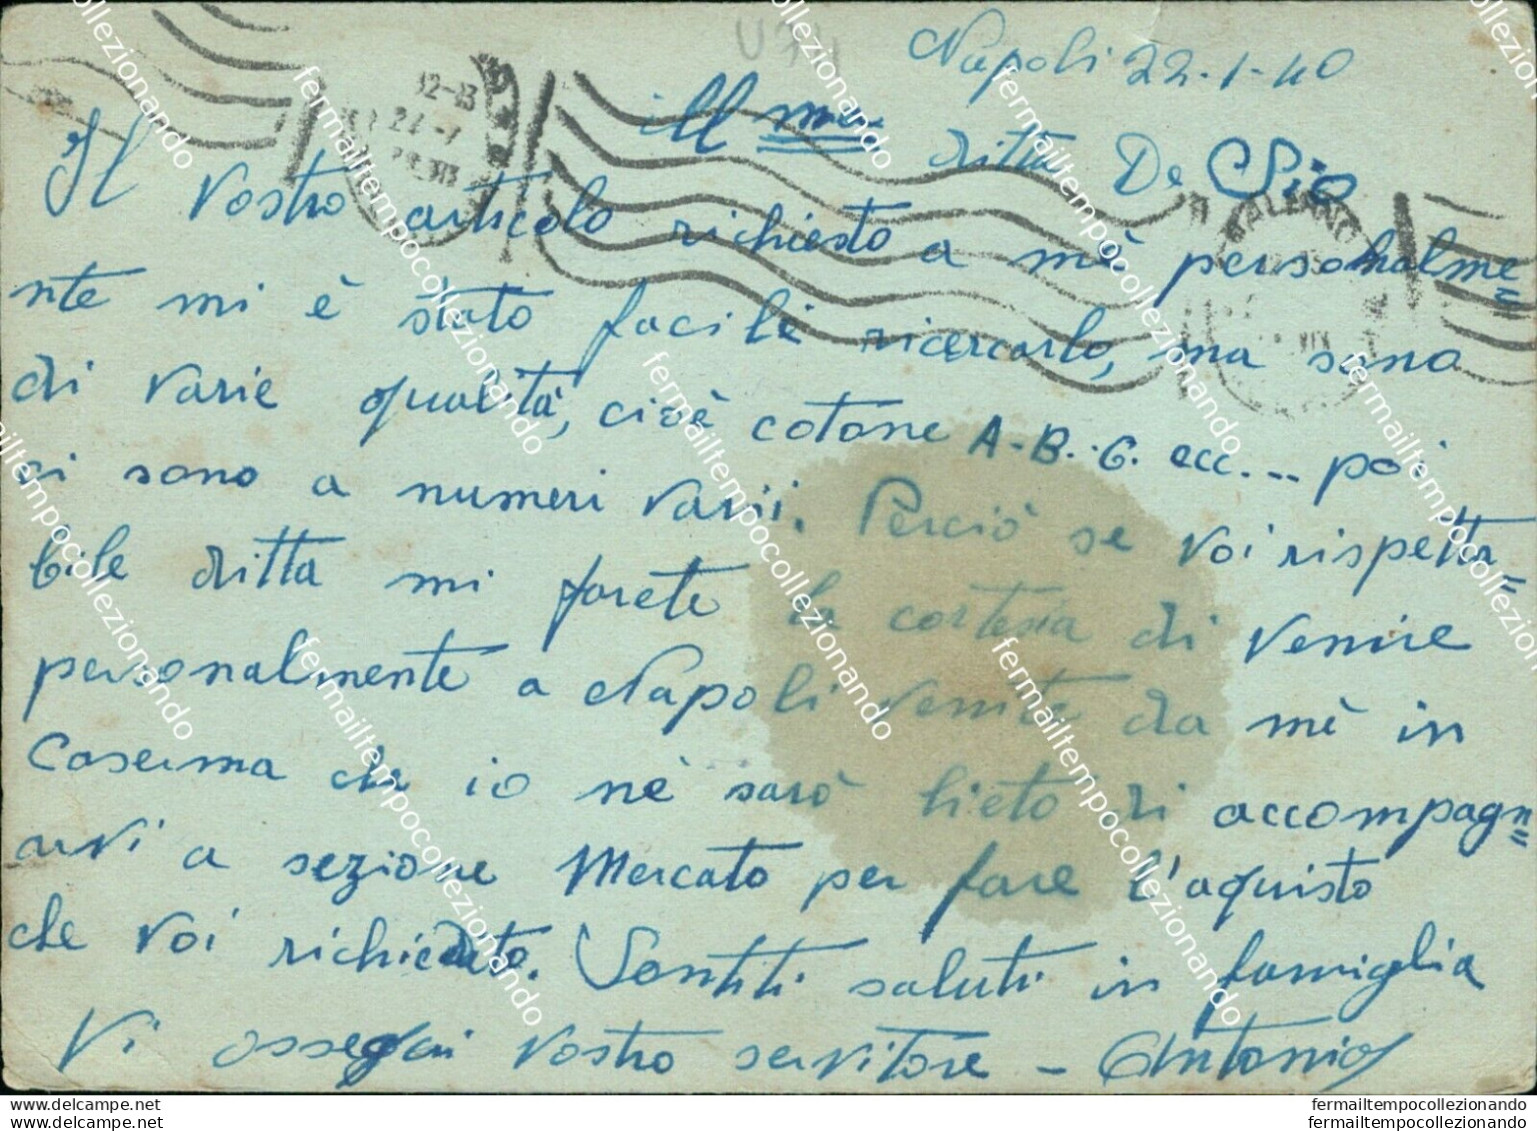 U 74
Napoli 22-1-40
ill me ditta De Sio
Il vostro articolo richiesto a mè personalme=
nte mi è stato facile ricercarlo, ma sono
di varie qualità, cioè cotone A-B.-C. ecc... poi
ci sono a numeri varii. Perciò se voi rispetta=
bile ditta mi farete la cortesia di venire
personalmente a Napoli venite da mè in
Caserma che io nè sarò lieto di accompagn=
arvi a sezione Mercato per fare l'aquisto
che voi richiedete. Sentiti saluti in famiglia
Vi ossequi vostro servitore - Antonio
fermailtempocollezionando
fermailtempocollezionando
www.delcampe.net
www.delcampe.net